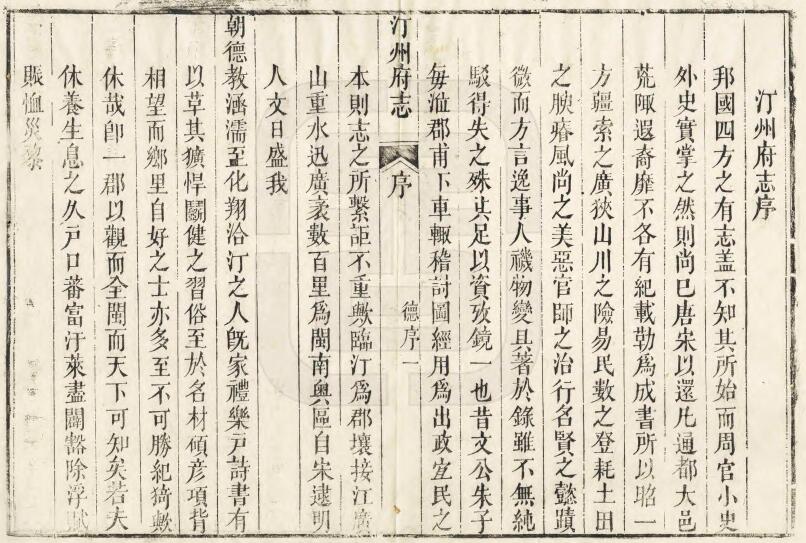 汀州府志序
邦國四方之有志盖不知其所始而周官小史
外史實掌之然則尚已唐宋以還凡通都大邑
荒陬遐裔靡不各有紀載勒為成書所以昭一
方疆索之廣狹山川之險易民數之登耗土田
之腴瘠風尚之美惡官師之治行名賢之懿蹟
微而方言逸事人禨物變具著於錄雖不無純
駁得失之殊其足以資攷鏡一也昔文公朱子
每涖郡甫下車輙稽討圖經用為出政宜民之
汀州府志
序
德序一
本則志之所繫詎不重歟臨汀為郡壤接江廣
山重水迅廣袤數百里為閩南輿區自宋逮明
人文日盛我
朝德教涵濡至化翔洽汀之人旣家禮樂戸詩書有
以草其獷悍鬭健之習俗至於名材碩彦項背
相望而鄉里自好之士亦多至不可勝紀猗歟
休哉卽一郡以觀而全閩而天下可知矣若夫
休養生息之久戸口蕃富汙萊盡闢豁除浮賦
賑恤災黎